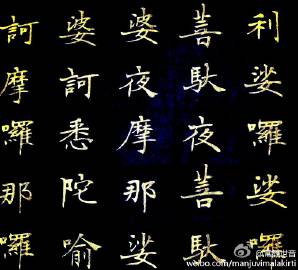 利娑囉娑囉
菩馱夜菩馱
婆夜摩那娑
婆訶悉陀喻
訶摩囉那囉
weibo.com/manjuvimalakirti